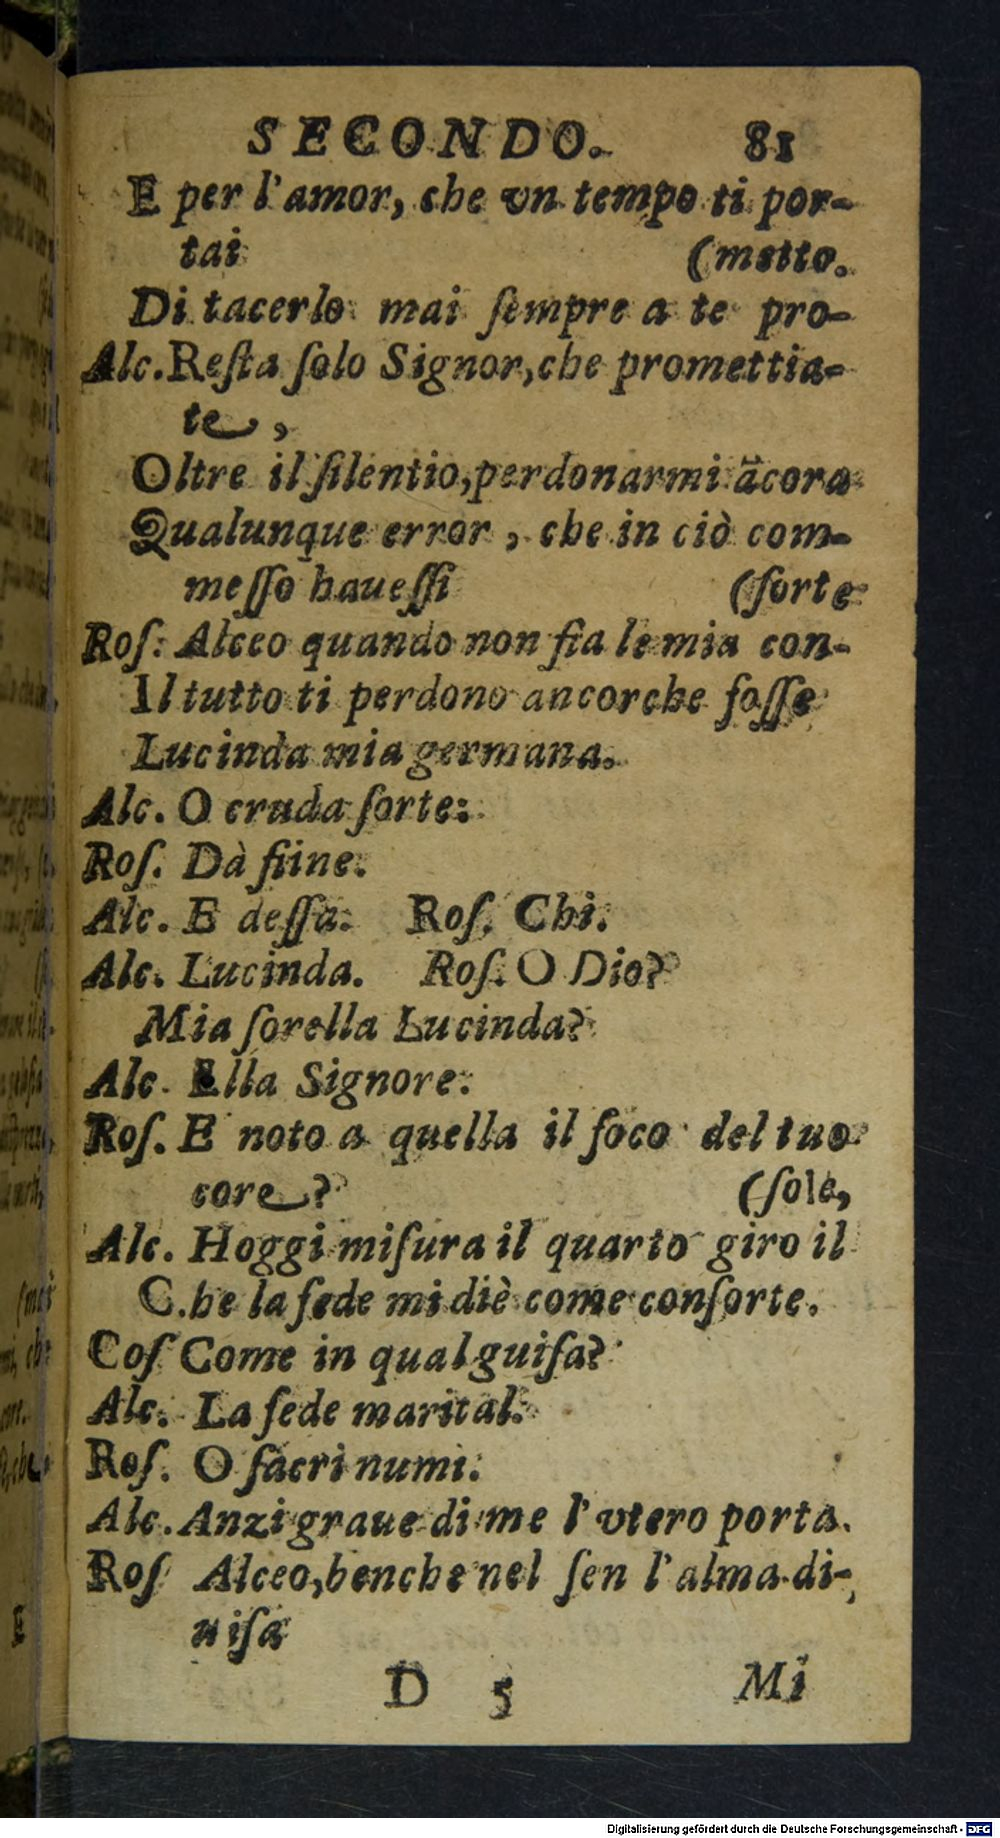 SECONDO. 81
E per l'amor, che vn tempo ti por-
tai (metto.
Di tacerlo mai ſempre a te pro-
Alc. Reſta ſolo Signor, che promettia-
te,
Oltre il ſilentio, perdonarmi ācora
Qualunque error, che in ciò com-
meſſo haueſſi (ſorte
Roſ. Alceo quando non fia le mia con-
Il tutto ti perdono ancorche foſſe
Lucinda mia germana.
Alc. O cruda ſorte:
Roſ. Dà fiine.
Alc. E deſſa. Roſ. Chi.
Alc. Lucinda. Roſ. O Dio?
Mia ſorella Lucinda?
Alc. Ella Signore.
Roſ. E noto a quella il foco del tuo
core? (ſole,
Alc. Hoggi miſura il quarto giro il
C.he la fede mi diè come conſorte.
Coſ Come in qual guiſa?
Alc. La fede marital.
Roſ. O ſacri numi.
Alc. Anzi graue di me l'vtero porta.
Roſ Alceo, benche nel ſen l'alma di-
uiſa
D 5 Mi
Digitalisierung gefördert durch die Deutsche Forschungsgemeinschaft - DFG